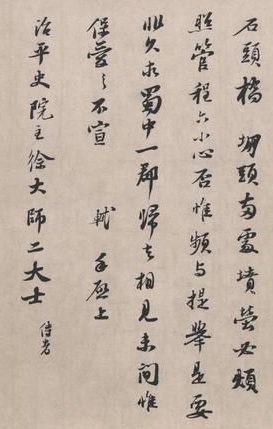 石頭橋堋頭兩處墳塋必煩
照管程六小心否惟頻与提舉是要
非久求蜀中一郡歸去相見未間惟
保愛之不宣 軾手啟上
治平史院主徐大師二大士 侍者